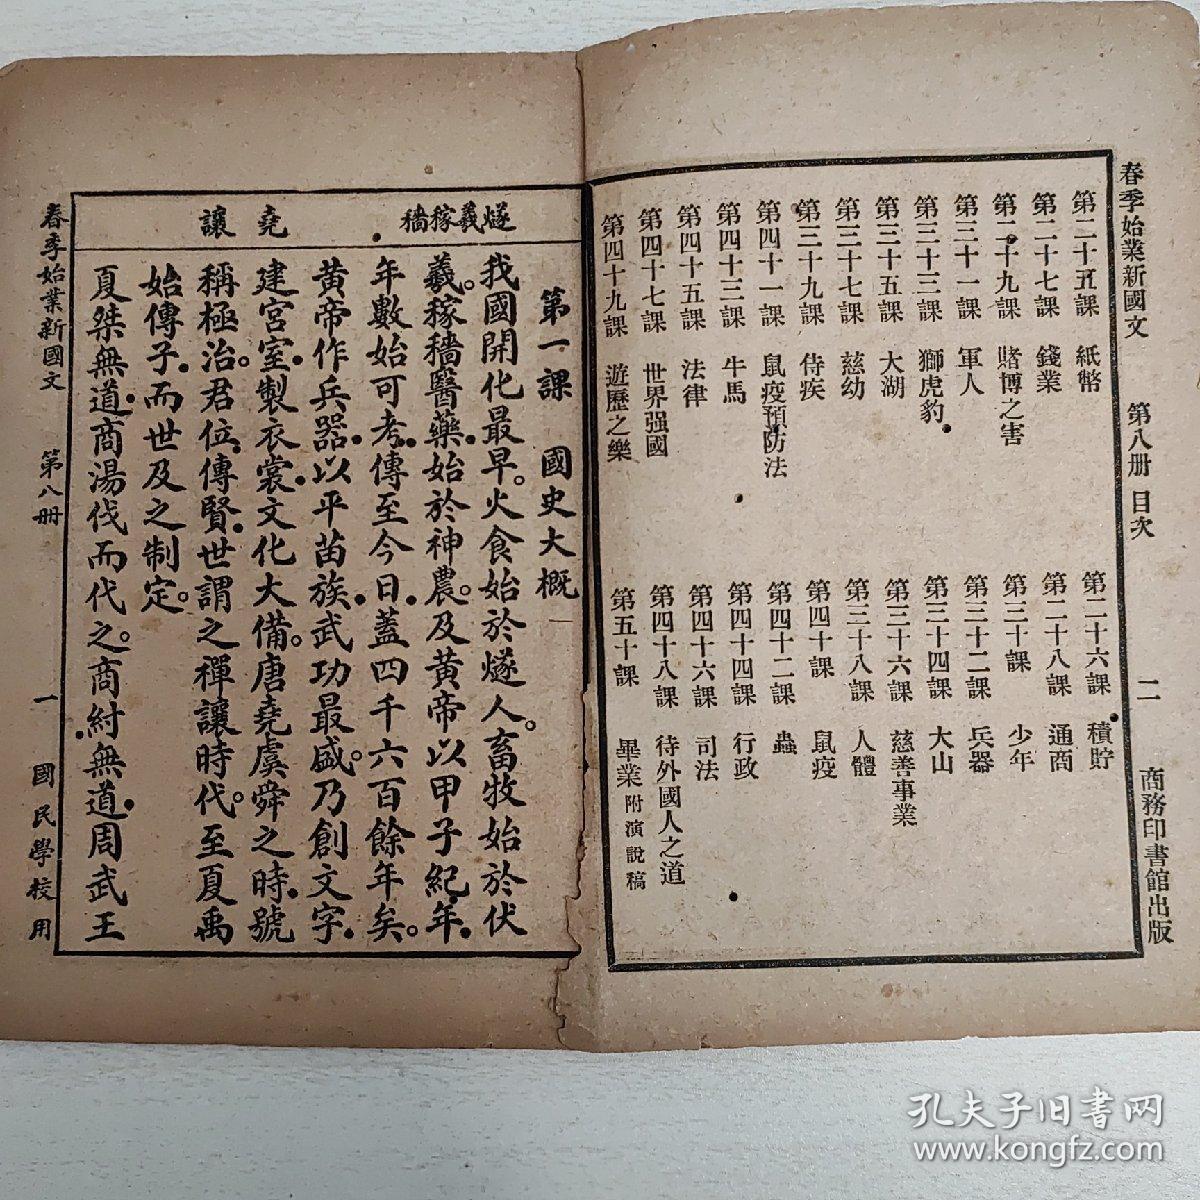 春季始業新國文 第八册 目次 二 商務印書館出版
第二十五課 紙幣 第二十六課 積貯
第二十七課 錢業 第二十八課 通商
第二十九課 賭博之害 第三十課 少年
第三十一課 軍人 第三十二課 兵器
第三十三課 獅虎豹 第三十四課 大山
第三十五課 大湖 第三十六課 慈善事業
第三十七課 慈幼 第三十八課 人體
第三十九課 侍疾 第四十課 鼠疫
第四十一課 鼠疫預防法 第四十二課 蟲
第四十三課 牛馬 第四十四課 行政
第四十五課 法律 第四十六課 司法
第四十七課 世界强國 第四十八課 待外國人之道
第四十九課 遊歷之樂 第五十課 畢業附演說稿
燧羲稼穡 堯讓
第一課 國史大概
我國開化最早。火食始於燧人。畜牧始於伏
羲。稼穡醫藥。始於神農。及黄帝以甲子紀年。
年數始可考。傳至今日。蓋四千六百餘年矣。
黄帝作兵器。以平苗族。武功最盛。乃創文字。
建宮室。製衣裳。文化大備。唐堯虞舜之時。號
稱極治。君位傳賢。世謂之禪讓時代。至夏禹
始傳子。而世及之制定。
夏桀無道。商湯伐而代之。商紂無道。周武王
春季始業新國文 第八册 一 國民學校用
孔夫子旧书网
www.kongfz.com